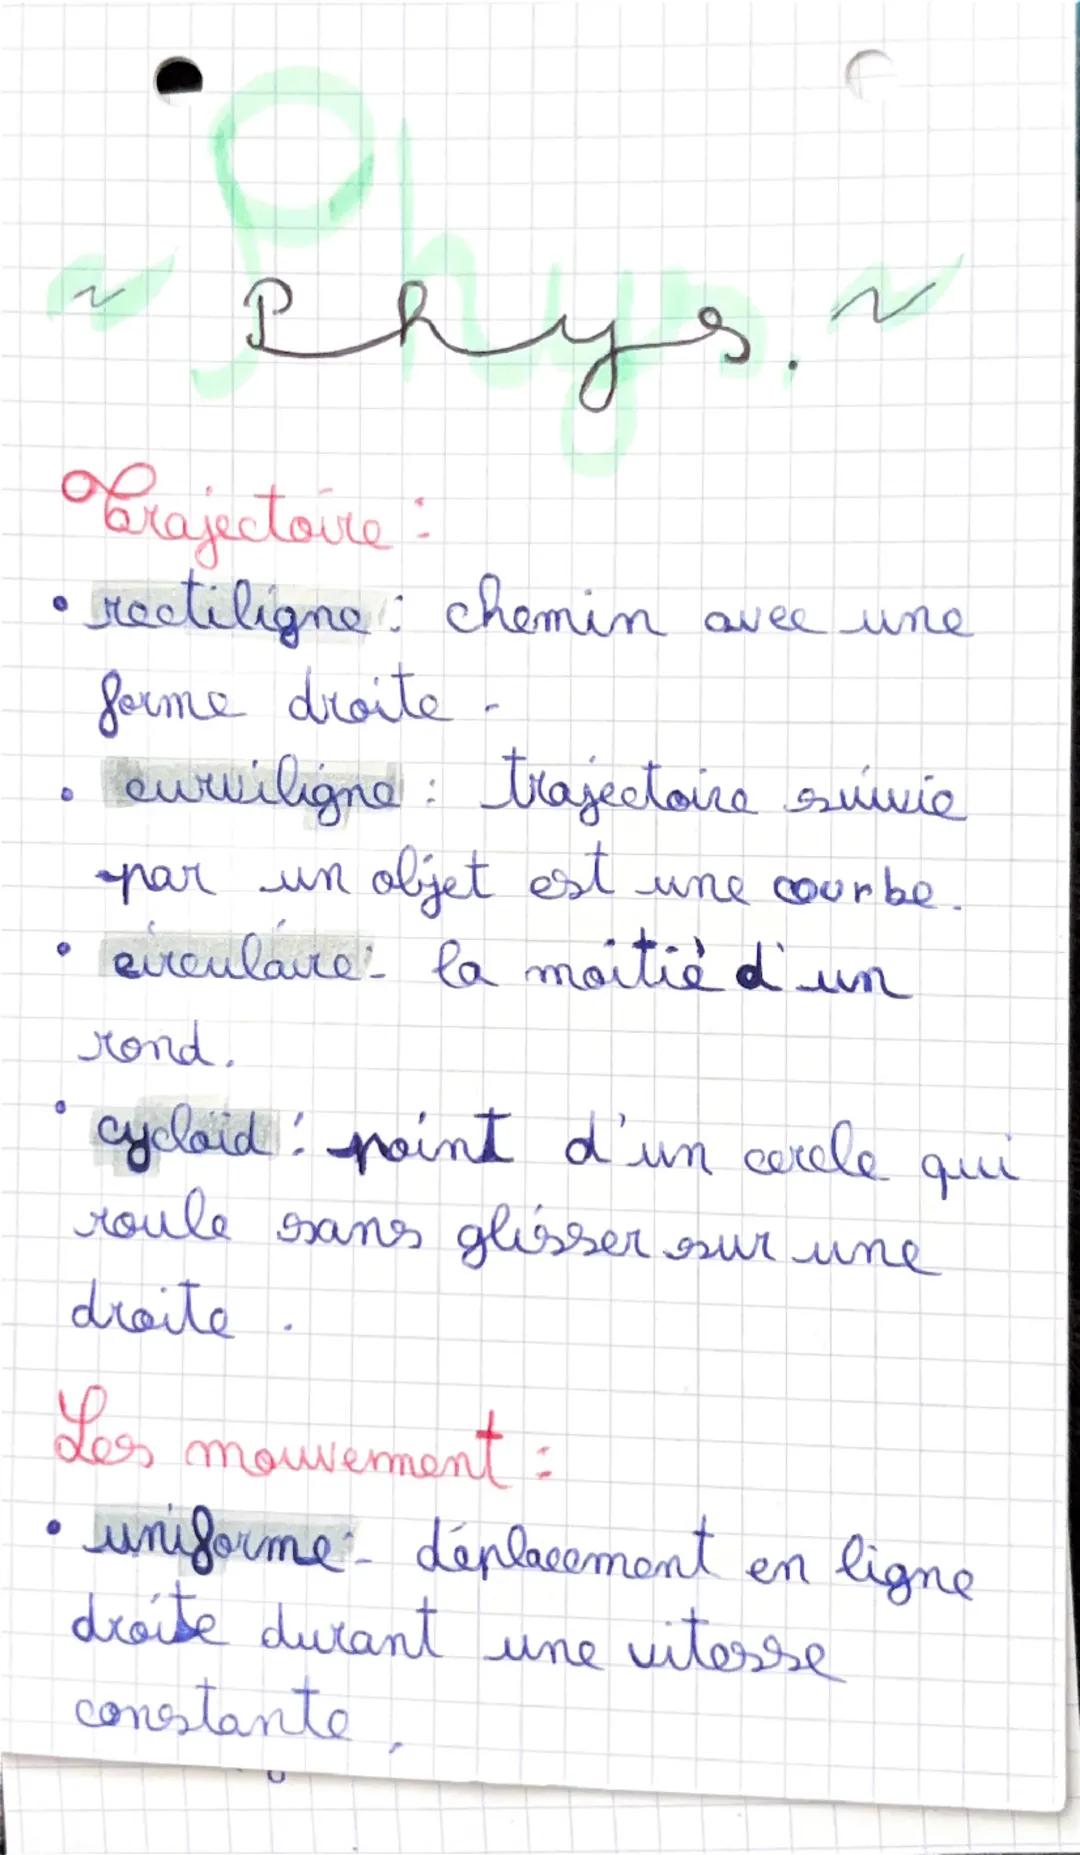 ~ Phys. ~
Trajectoire :
• rectiligne : chemin avec une
forme droite.
• curviligne : trajectoire suivie
par un objet est une courbe.
• circulaire : la moitié d'un
rond.
• cycloïd : point d'un cercle qui
roule sans glisser sur une
droite.
Les mouvement :
• uniforme : déplacement en ligne
droite durant une vitesse
constante.